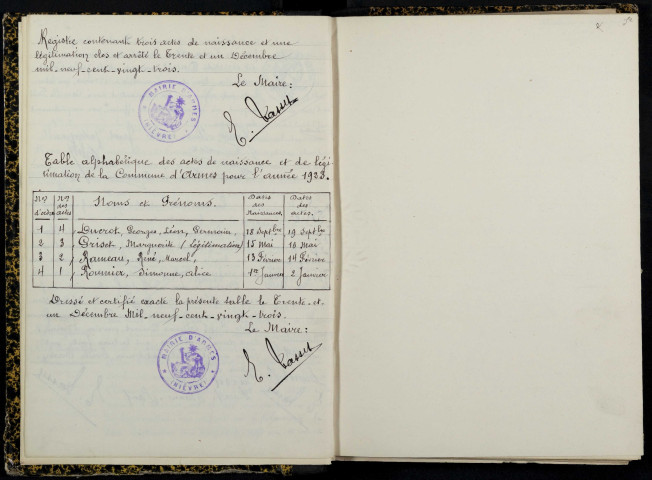 Registre contenant trois actes de naissance et une
légitimation clos et arrêté le Trente et un Décembre
mil-neuf-cent-vingt-trois.
Le Maire:
MAIRIE D'ARMES
(NIÈVRE)
Table alphabétique des actes de naissance et de légi-
timation de la Commune d'Armes pour l'année 1923.
Nos d'ordre Nos des actes Noms et Prénoms. Dates des Naissances Dates des actes.
1 4 Ducrot, Georges, Léon, Germain, 18 Septbre 19 Septbre
2 3 Grisot, Marguerite (légitimation) 15 Mai 16 Mai
3 2 Rameau, René, Marcel, 13 Février 14 Février
4 1 Roumier, Simonne, 1er Janvier 2 Janvier
Dressé et certifié exacte la présente table le Trente-et-
un Décembre Mil-neuf-cent-vingt-trois.
Le Maire:
MAIRIE D'ARMES
(NIÈVRE)